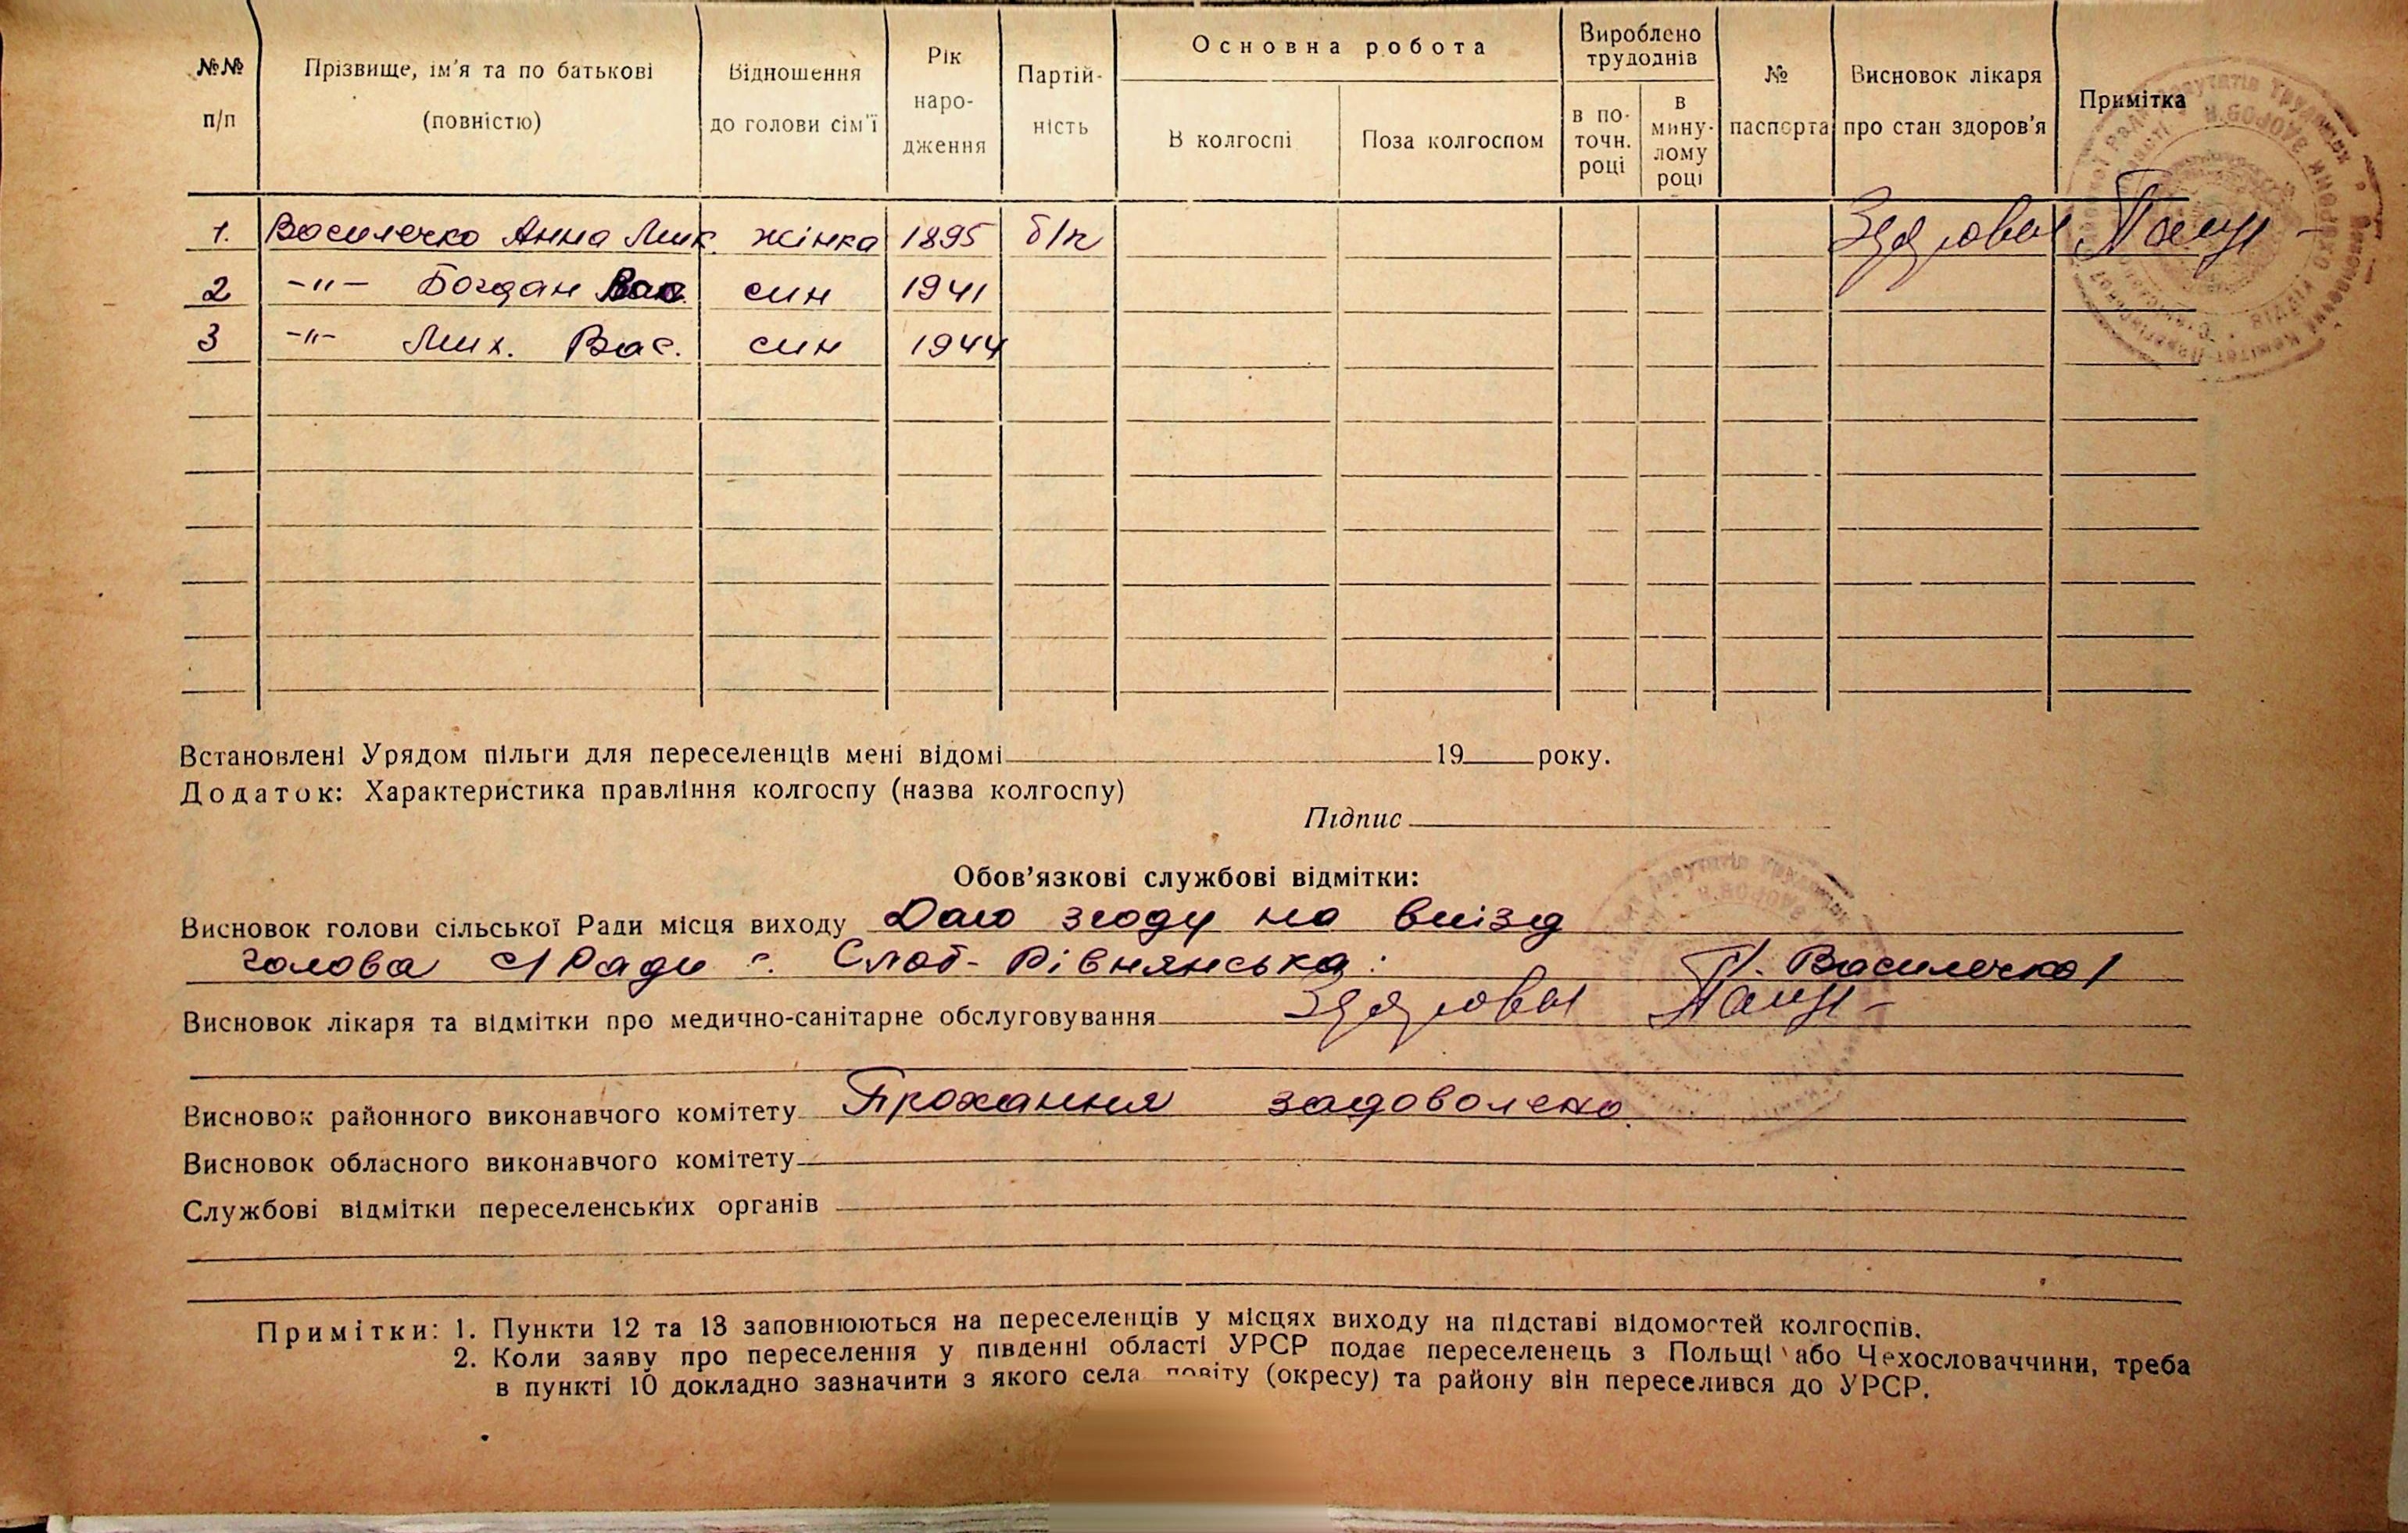 №№ п/п | Прізвище, ім'я та по батькові (повністю) | Відношення до голови сім'ї | Рік народження | Партійність | Основна робота | Вироблено трудоднів | № паспорта | Висновок лікаря про стан здоров'я | Примітка
В колгоспі | Поза колгоспом | в поточн. році | в минулому році
1. Василечко Анна Мик. жінка 1895 б/п Здорові
2 -"- Богдан Вас. син 1941
3 -"- Мих. Вас. син 1944
Встановлені Урядом пільги для переселенців мені відомі 19 року.
Додаток: Характеристика правління колгоспу (назва колгоспу)
Підпис
Обов'язкові службові відмітки:
Висновок голови сільської Ради місця виходу Даю згоду на виїзд
голова с/Ради с. Слоб-Рівнянська: П. Василечко
Висновок лікаря та відмітки про медично-санітарне обслуговування Здорові
Висновок районного виконавчого комітету Прохання задоволено.
Висновок обласного виконавчого комітету
Службові відмітки переселенських органів
Примітки: 1. Пункти 12 та 13 заповнюються на переселенців у місцях виходу на підставі відомостей колгоспів.
2. Коли заяву про переселення у південні області УРСР подає переселенець з Польщі або Чехословаччини, треба
в пункті 10 докладно зазначити з якого села повіту (окресу) та району він переселився до УРСР.